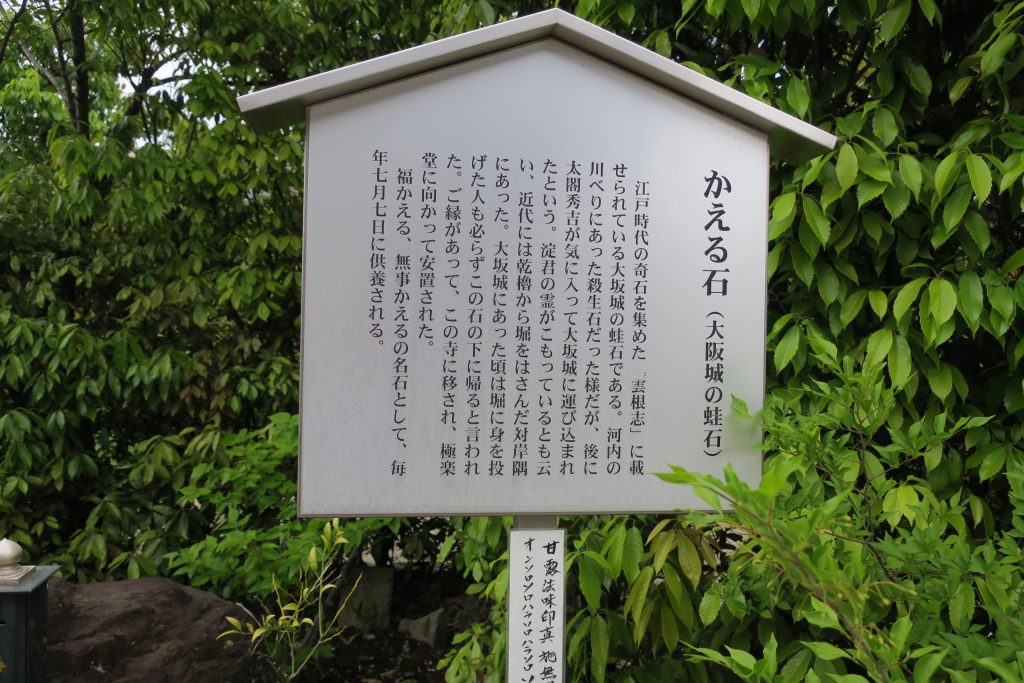 かえる石（大阪城の蛙石）
江戸時代の奇石を集めた「雲根志」に載
せられている大坂城の蛙石である。河内の
川べりにあった殺生石だった様だが、後に
太閤秀吉が気に入って大坂城に運び込まれ
たという。淀君の霊がこもっているとも云
い、近代には乾櫓から堀をはさんだ対岸隅
にあった。大坂城にあった頃は堀に身を投
げた人も必らずこの石の下に帰ると言われ
た。ご縁があって、この寺に移され、極楽
堂に向かって安置された。
福かえる、無事かえるの名石として、毎
年七月七日に供養される。
甘露法味印真 施無
オンソロソロハラソロハラソロソ